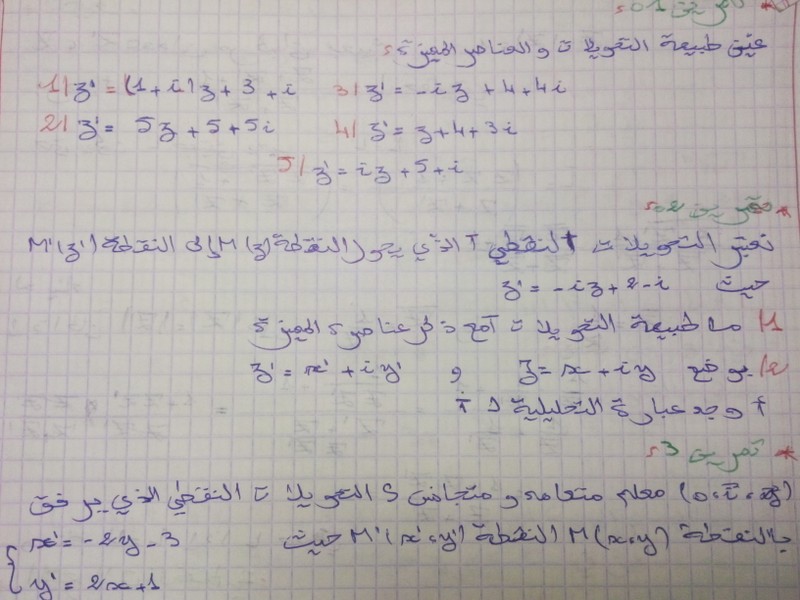 * تمرين 01:
عين طبيعة التحويلات و العناصر المميزة:
1/ z' = (1+i)z + 3 + i
3/ z' = -iz + 4 + 4i
2/ z' = 5z + 5 + 5i
4/ z' = z + 4 + 3i
5/ z' = iz + 5 + i
* تمرين 02:
نعتبر التحويلات النقطي T الذي يحول النقطة M(z) إلى النقطة M'(z')
حيث z' = -iz + 2 - i
1/ ما طبيعة التحويلات T مع ذكر عناصره المميزة
2/ بوضع z = x + iy و z' = x' + iy'
وجد عبارة التحليلية لـ T
* تمرين 3:
معلم متعامد و متجانس S التحويلات النقطي الذي يرفق
بالنقطة M(x،y) النقطة M'(x'،y') حيث
{ x' = -2y - 3
y' = 2x + 1